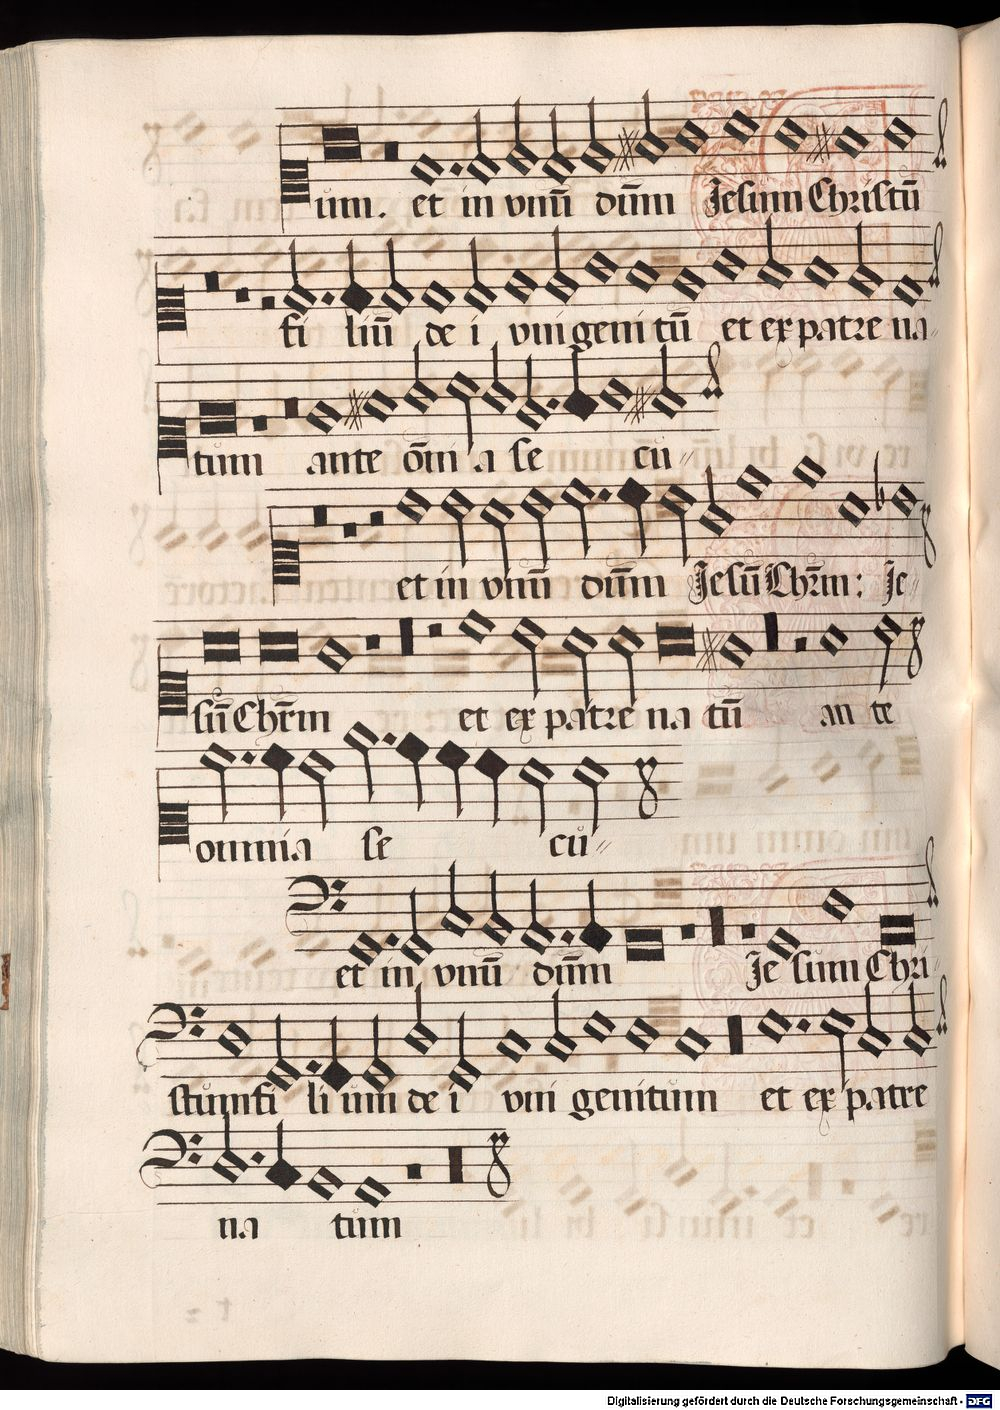 um. et in vnū dūm Jesum Christū
fi liū de i vni geni tū et ex patre na-
tum ante ōm̄i a se cu
et in vnū dūm Jesū Chrm̄: Je-
sū Chrm̄ et ex patre na tū an te
omnia se cu
et in vnū dūm Je sum Chri-
stum fi li um de i vni genitum et ex patre
na tum
Digitalisierung gefördert durch die Deutsche Forschungsgemeinschaft - DFG